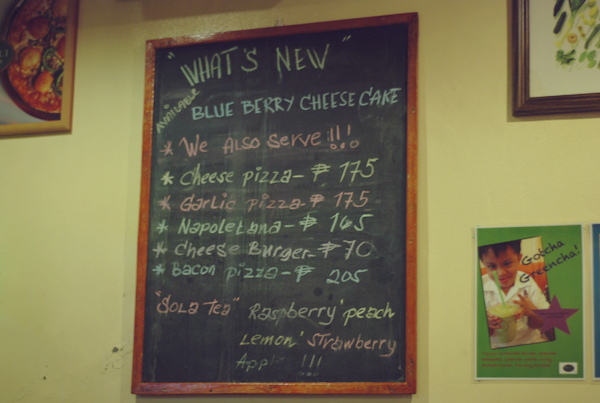 "WHAT'S NEW"
AVAILABLE
BLUE BERRY CHEESE CAKE
* We ALSO Serve !!!
* Cheese pizza - ₱ 175
* Garlic pizza - ₱ 175
* Napoletana - ₱ 165
* Cheese Burger - ₱ 70
* Bacon pizza - ₱ 205
"SOLA TEA" Raspberry' peach
Lemon' Strawberry
Apple !!!
Gotcha
Greencha!